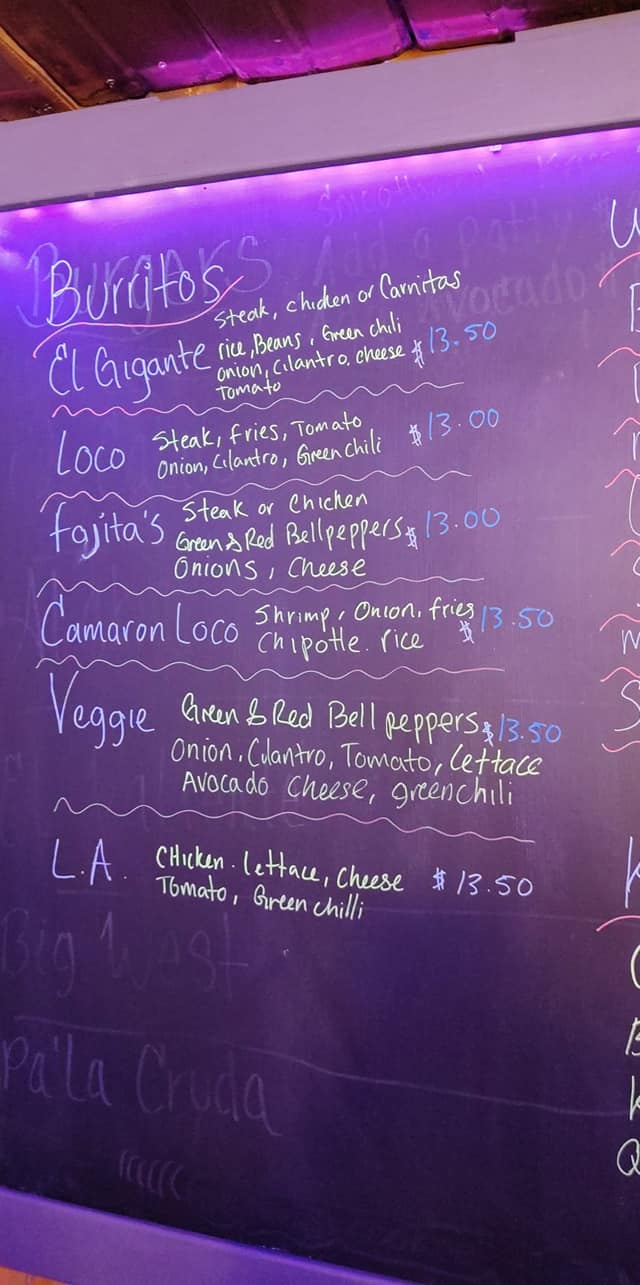 Burgers
Add a Patty
Avocado
Burritos
El Gigante
Steak, chicken or Carnitas
rice, Beans, Green chili
onion, Cilantro, cheese $13.50
Tomato
Loco
Steak, fries, Tomato $13.00
Onion, Cilantro, Green chili
Fajita's
Steak or Chicken
Green & Red Bellpeppers $13.00
Onions, Cheese
Camaron Loco
Shrimp, Onion, fries $13.50
Chipotle. rice
Veggie
Green & Red Bell peppers $13.50
Onion, Cilantro, Tomato, Lettace
Avocado Cheese, greenchili
L.A.
CHicken. Lettace, Cheese $13.50
Tomato, Green chilli
Big West
Pa'La Cruda